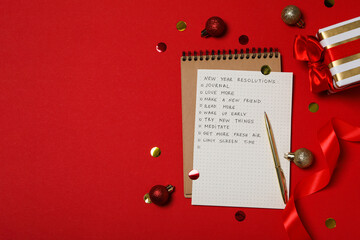 NEW YEAR RESOLUTIONS
JOURNAL
LOVE MORE
MAKE A NEW FRIEND
READ MORE
WAKE UP EARLY
TRY NEW THINGS
MEDITATE
GET MORE FRESH AIR
LIMIT SCREEN TIME